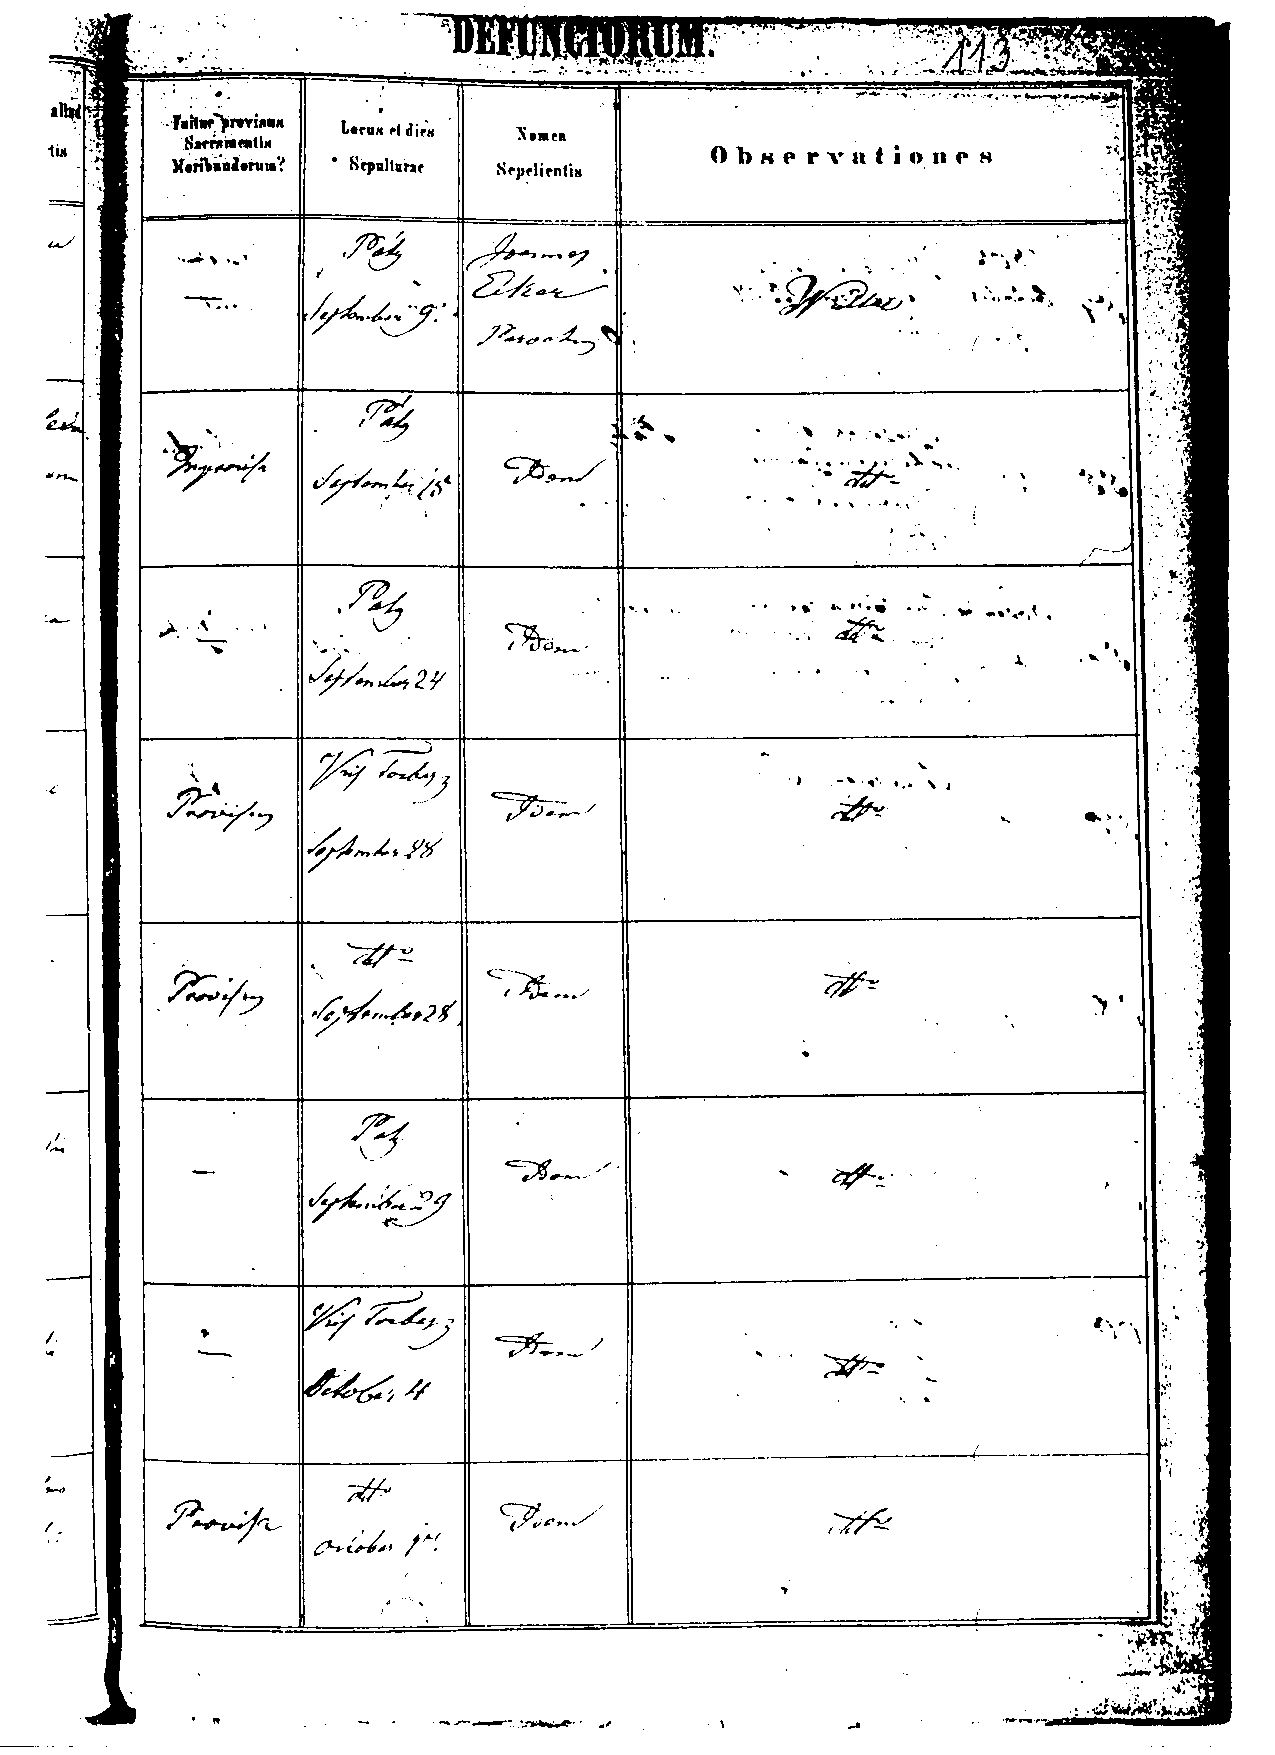 DEFUNCTORUM.
113
Fuitne provisus
Sacramentis
Moribundorum?
Locus et dies
Sepulturae
Nomen
Sepelientis
Observationes
Páty
September 9.
Joannes
Eiker
Parochus
Improvisa
Páty
September 15
Idem
dtto
Páty
September 24
Idem
dtto
Provisus
September 28
Idem
dtto
Provisus
dtto
September 28
Idem
dtto
Páty
September 29
Idem
dtto
October 4
Idem
dtto
Provisa
dtto
October
Idem
dtto